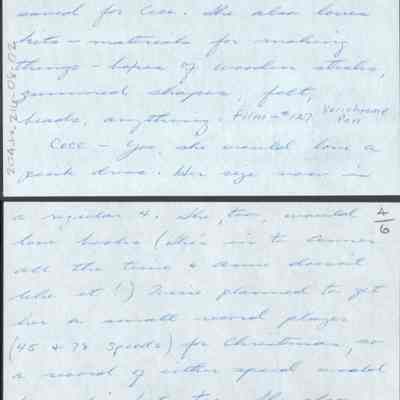 saved for Cece. She also loves
kits - materials for making
things - boxes of wooden sticks,
gummed shapes, felt,
beads, anything. Film - #127 Verichrome
Pan
Cece - Yes, she would love a
pink dress. Her size now is
a regular 4. She, too, would
love books (she's in to Anne's
all the time & Anne doesn't
like it!) We're planned to get
her a small record player
(45 & 78 speeds) for Christmas, so
a record of either speed would
4/6